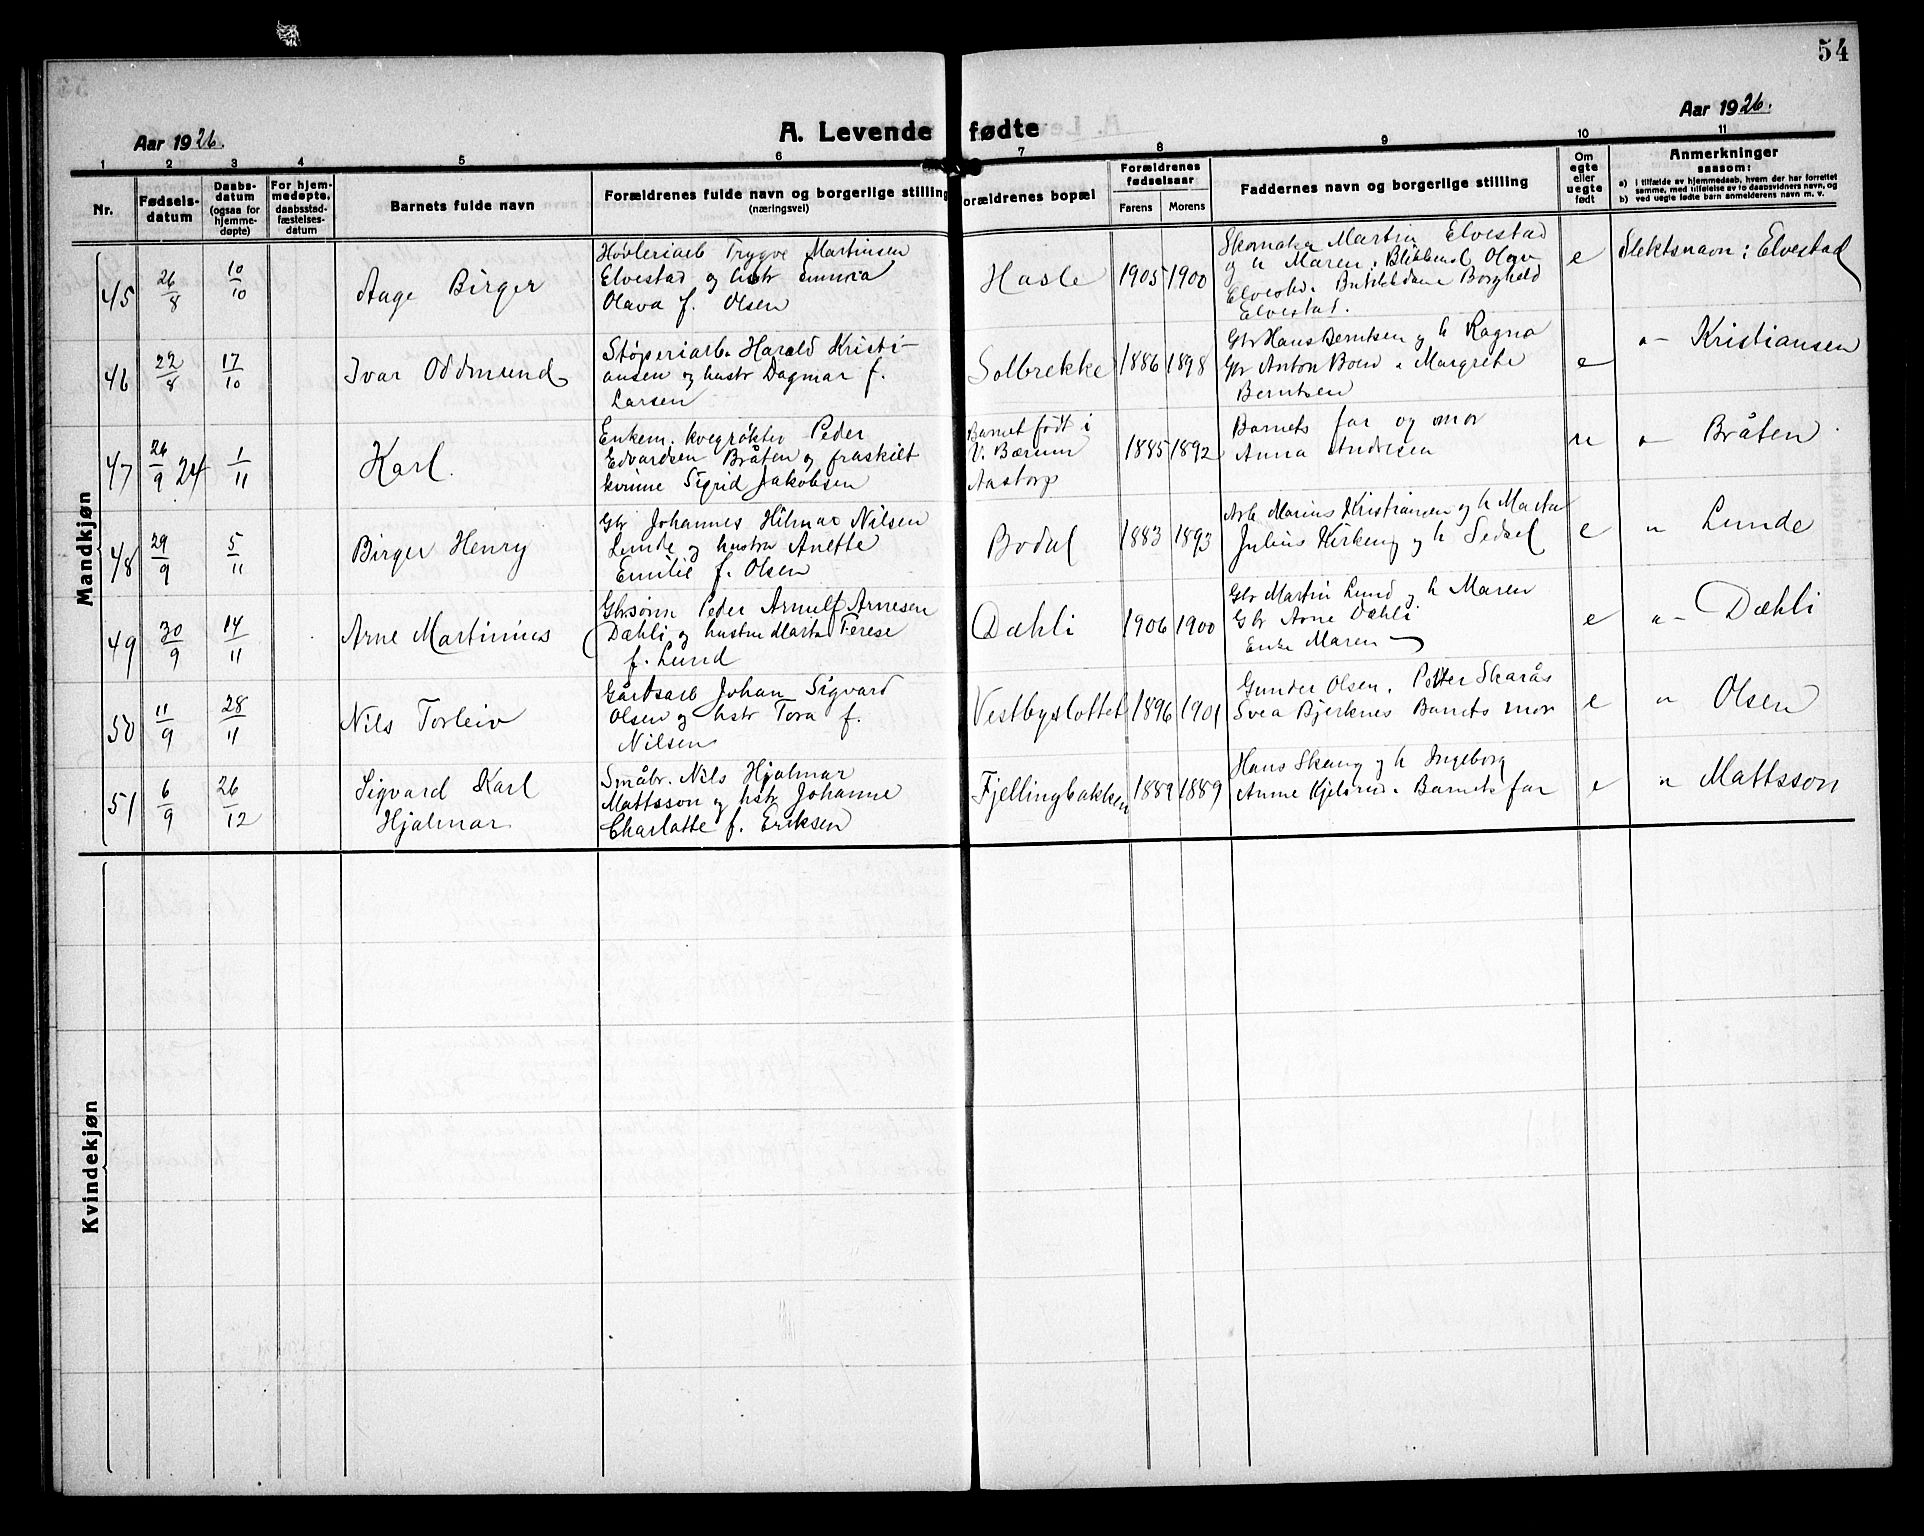 54
Aar 1926.
A. Levende fødte
Aar 1926.
1 2 3 4 5 6 7 8 9 10 11
Nr.
Fødsels-
datum
Daabs-
datum
(ogsaa for
hjemme-
døpte)
For hjem-
medøpte,
daabsstad-
fæstelses-
datum
Barnets fulde navn
Forældrenes fulde navn og borgerlige stilling
(næringsvei)
Forældrenes bopæl
Forældrenes
fødselsaar
Farens Morens
Faddernes navn og borgerlige stilling
Om
egte
eller
uegte
født
Anmerkninger
saasom:
a) i tilfælde av hjemmedaab, hvem der har forrettet
samme, med tilføielse av to daabsvidners navn, og
b) ved uegte fødte barn anmelderens navn m. v.
Mandkjøn
45
26/8
10/10
Aage Birger
Høvleriarb Trygve Martinsen
Elvestad og hstr Emma
Olava f. Olsen
Hasle
1905 1900
Skomaker Martin Elvestad
og h Maren. Olga
Elvestad. Borghild
Elvestad.
e
Slektsnavn: Elvestad
46
22/8
17/10
Ivar Oddmund
Støperiarb. Harald Kristi-
ansen og hustr Dagmar f.
Larsen
Solbrekke
1886 1898
Gbr Hans Berntsen og h Ragna
Gbr Anton Boen Margrethe
Berntsen
e
" - Kristiansen
47
26/9 24
1/11
Karl.
Enkem. kvegrøkter Peder
Edvardsen Bråten og fraskilt
kvinne Sigrid Jakobsen
Barnet født i
V. Bærum
Aastorp
1885 1892
Barnets far og mor
Anna Andresen
u
" - Bråten
48
29/9
5/11
Birger Henry
Gbr Johannes Hilmar Nilsen
Lunde og hustru Anette
Emilie f. Olsen
Bodal
1883 1893
Arb Marius Kristiansen og h Marta
Julius Kirkeng og h Sedsel
e
" Lunde
49
30/9
14/11
Arne Martinius
Gbrsønn Peder Arnulf Arnesen
Dæhli og hustru Marta Terese
f. Lund
Dæhli
1906 1900
Gbr Martin Lund og h Maren
Gbr Arne Dæhli
Enke Maren —
e
" - Dæhli
50
11/9
28/11
Nils Torleiv
Gårdsarb Johan Sigvard
Olsen og hstr Tora f.
Nilsen
Vestbyslottet
1896 1901
Gunder Olsen. Petter Skarås
Svea Bjerknes Barnets mor
e
" Olsen
51
6/9
26/12
Sigvard Karl
Hjalmar
Småbr. Nils Hjalmar
Mattsson og hstr Johanne
Charlotte f. Eriksen
Fjellingbakken
1889 1889
Hans Skaug og h Ingeborg
Anne Kjelsrud. Barnets far
e
" Mattsson
Kvindekjøn